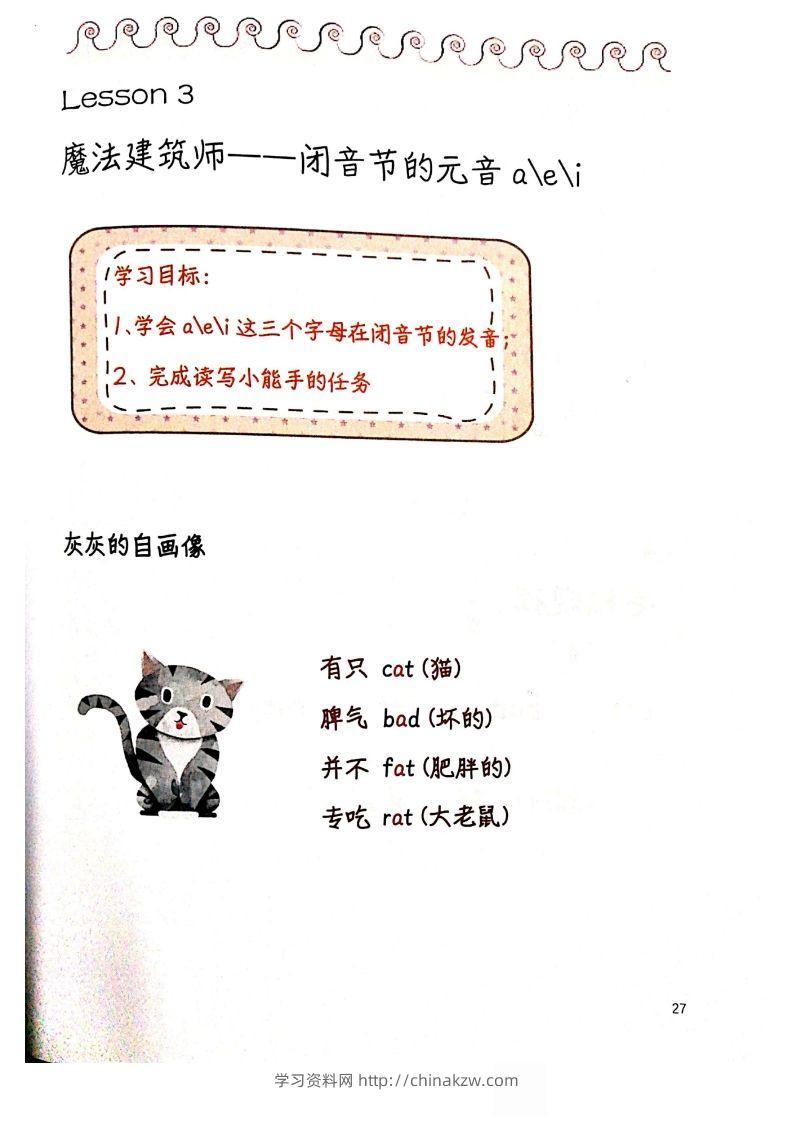 Lesson 3
魔法建筑师——闭音节的元音 a\e\i
学习目标：
1、学会 a\e\i 这三个字母在闭音节的发音；
2、完成读写小能手的任务
灰灰的自画像
有只 cat (猫)
脾气 bad (坏的)
并不 fat (肥胖的)
专吃 rat (大老鼠)
27
学习资料网 http://chinakzw.com